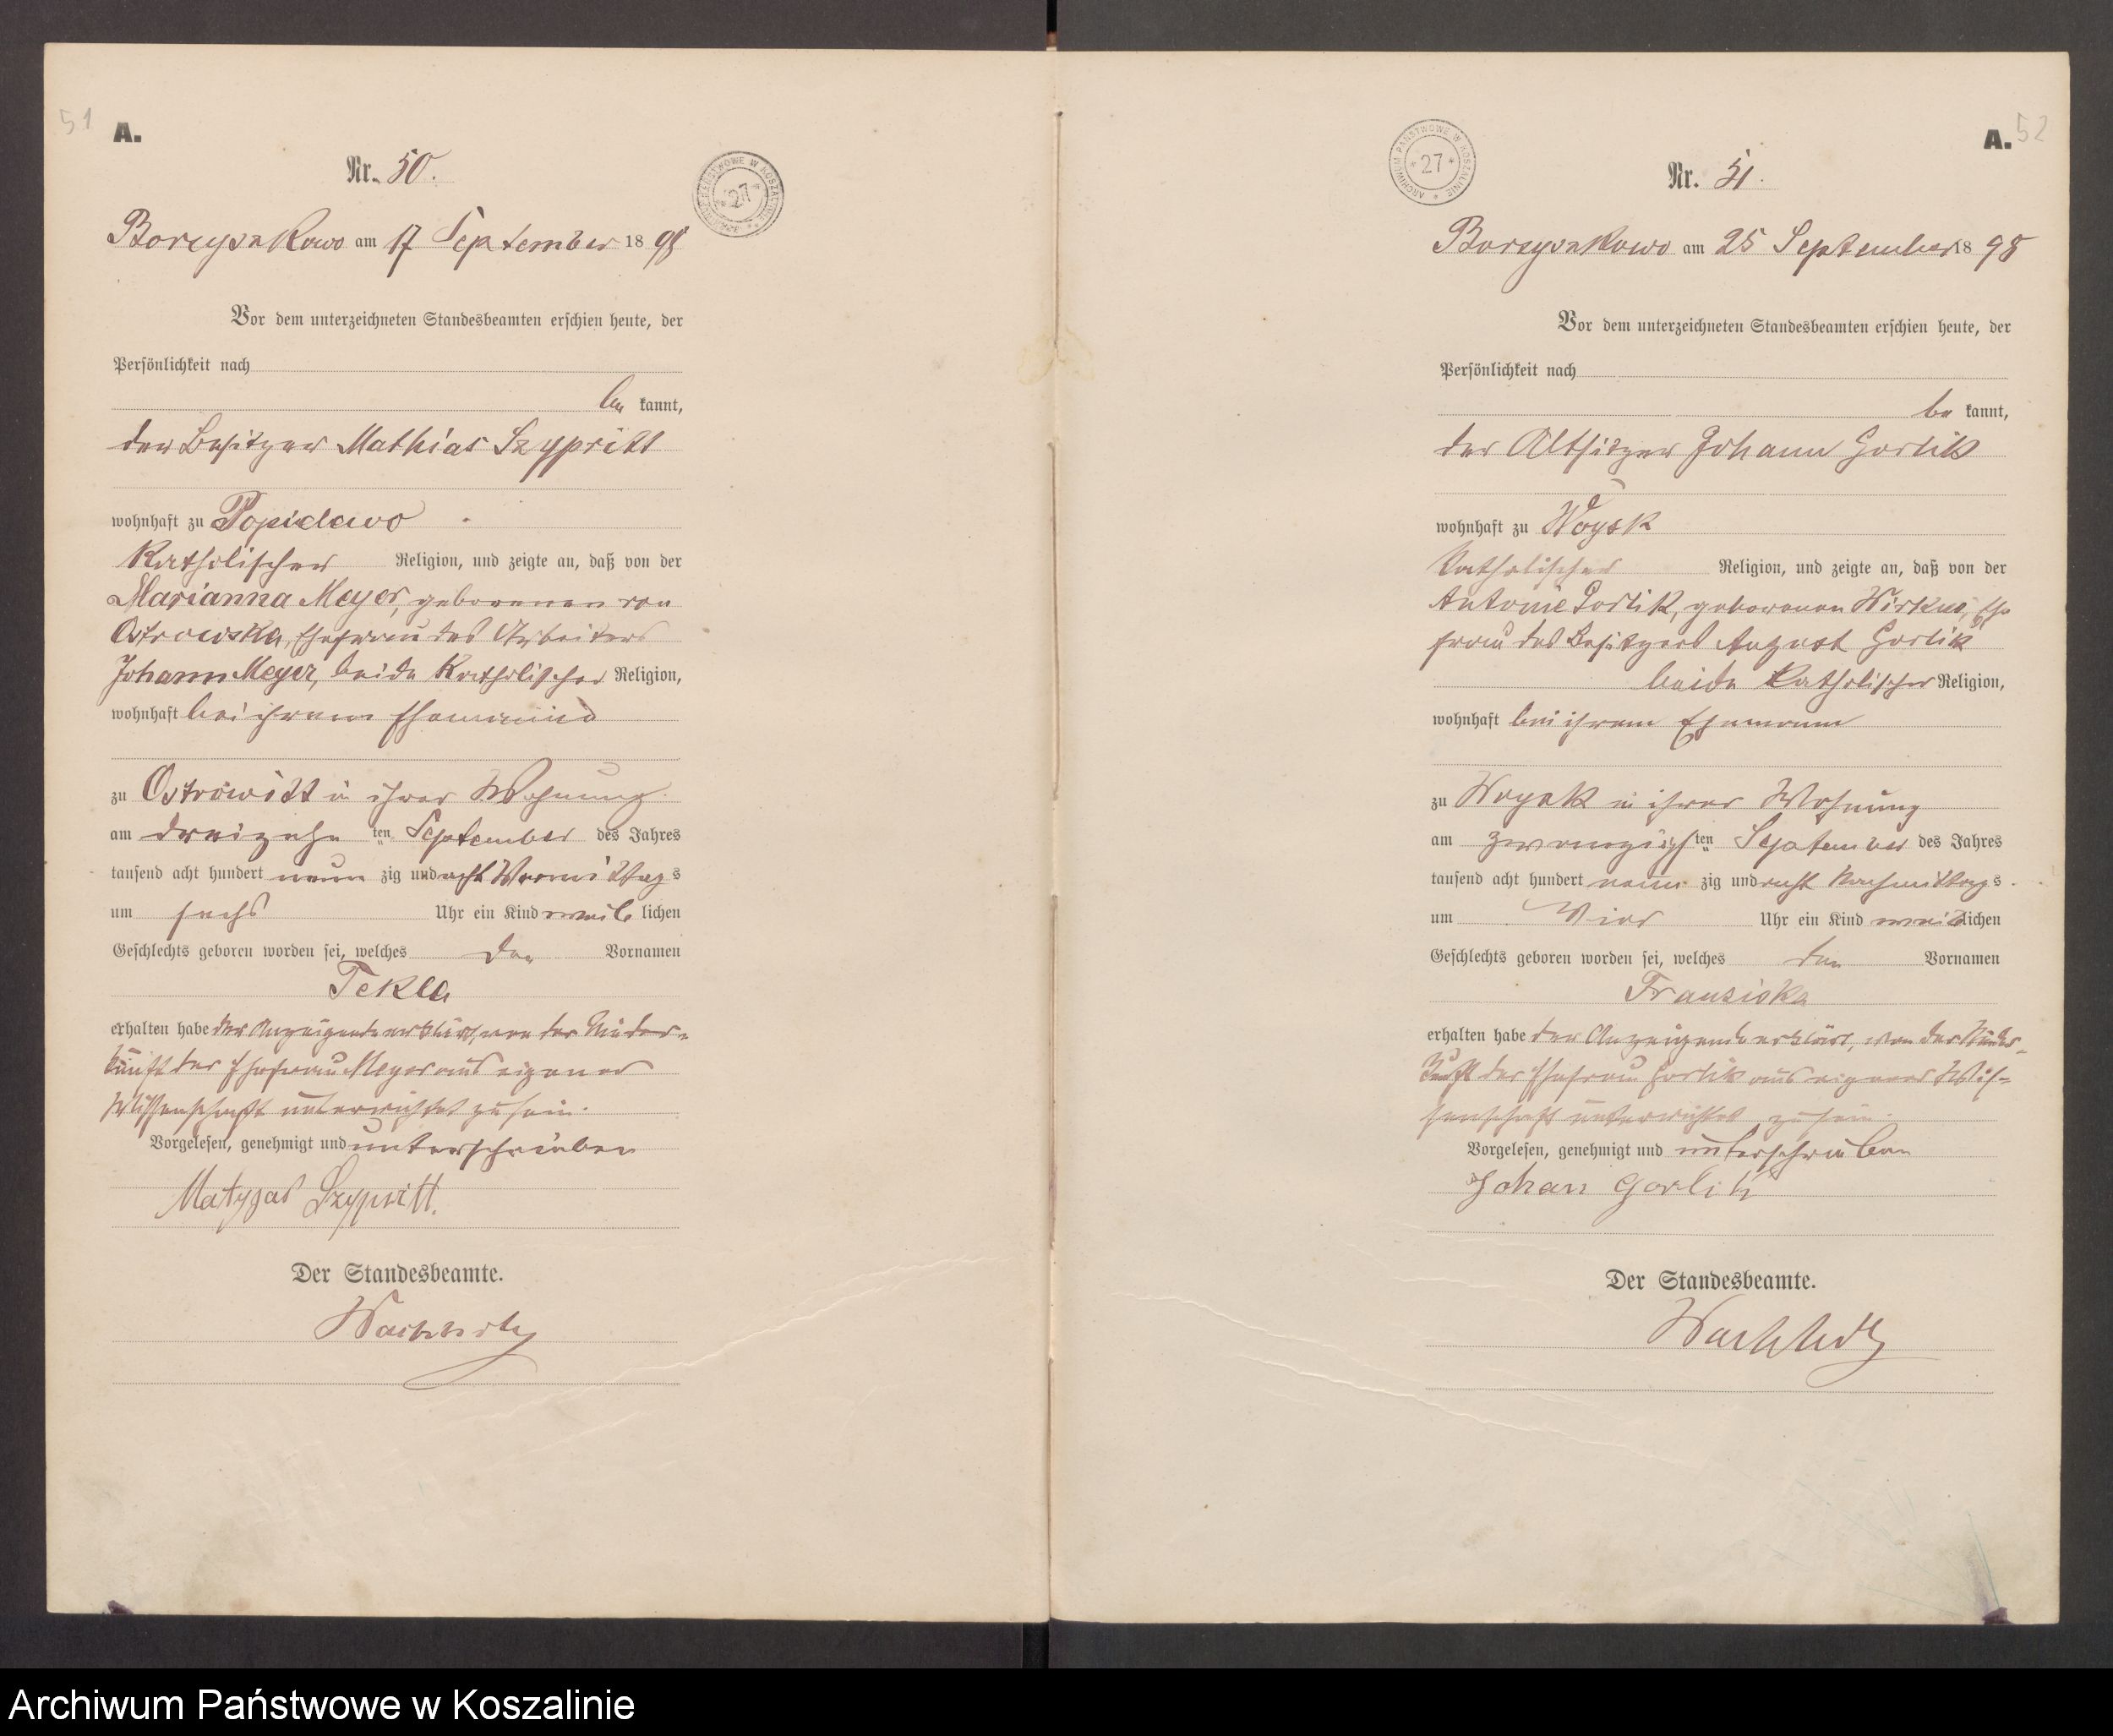 51
A.
Nr. 50.
ARCHIWUM PAŃSTWOWE W KOSZALINIE
* 27 *
Borzyszkowo am 17 September 1898
Vor dem unterzeichneten Standesbeamten erschien heute, der
Persönlichkeit nach
be kannt,
der Besitzer Mathias Szypritt
wohnhaft zu
katholischer Religion, und zeigte an, daß von der
Marianna Meyer, geborenen von
Ostrowska, Ehefrau des Arbeiters
Johann Meyer, beide katholischer Religion,
wohnhaft bei ihrem Ehemann
zu Ostrowitt in ihrer Wohnung
am dreizehn ten September des Jahres
tausend acht hundert neun zig und acht Vormittags
um sechs Uhr ein Kind weib lichen
Geschlechts geboren worden sei, welches den Vornamen
Tekla
erhalten habe der Anzeigende erklärt, von der Nieder-
kunft der Ehefrau Meyer aus eigener
Wissenschaft unterrichtet zu sein.
Vorgelesen, genehmigt und unterschrieben
Matyzas Szypritt.
Der Standesbeamte.
52
A.
Nr. 51.
ARCHIWUM PAŃSTWOWE W KOSZALINIE
* 27 *
Borzyszkowo am 25 September 1898
Vor dem unterzeichneten Standesbeamten erschien heute, der
Persönlichkeit nach
be kannt,
der Altsitzer Johann Gorlik
wohnhaft zu Woysk
katholischer Religion, und zeigte an, daß von der
Antonie Gorlik, geborenen Wirkus, Ehe
frau des Besitzers August Gorlik
beide katholischer Religion,
wohnhaft bei ihrem Ehemann
zu Woysk in ihrer Wohnung
am zwanzigs ten September des Jahres
tausend acht hundert neun zig und acht Nachmittags
um Vier Uhr ein Kind weiblichen
Geschlechts geboren worden sei, welches den Vornamen
Franziska
erhalten habe der Anzeigende erklärt, von der Nieder-
kunft der Ehefrau Gorlik aus eigener Wis-
senschaft unterrichtet zu sein.
Vorgelesen, genehmigt und unterschrieben
Johan Gorlik
Der Standesbeamte.
Archiwum Państwowe w Koszalinie